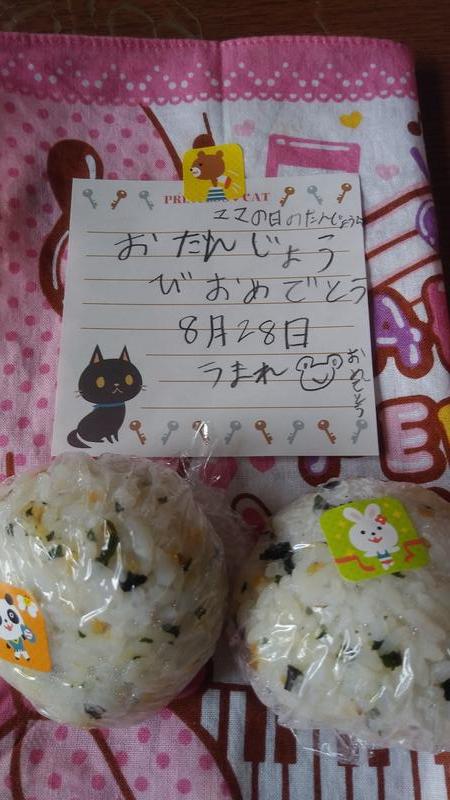 PRE CAT
ママの日のたんじょう
おたんじょう
びおめでとう
8月28日
うまれ
おめでとう